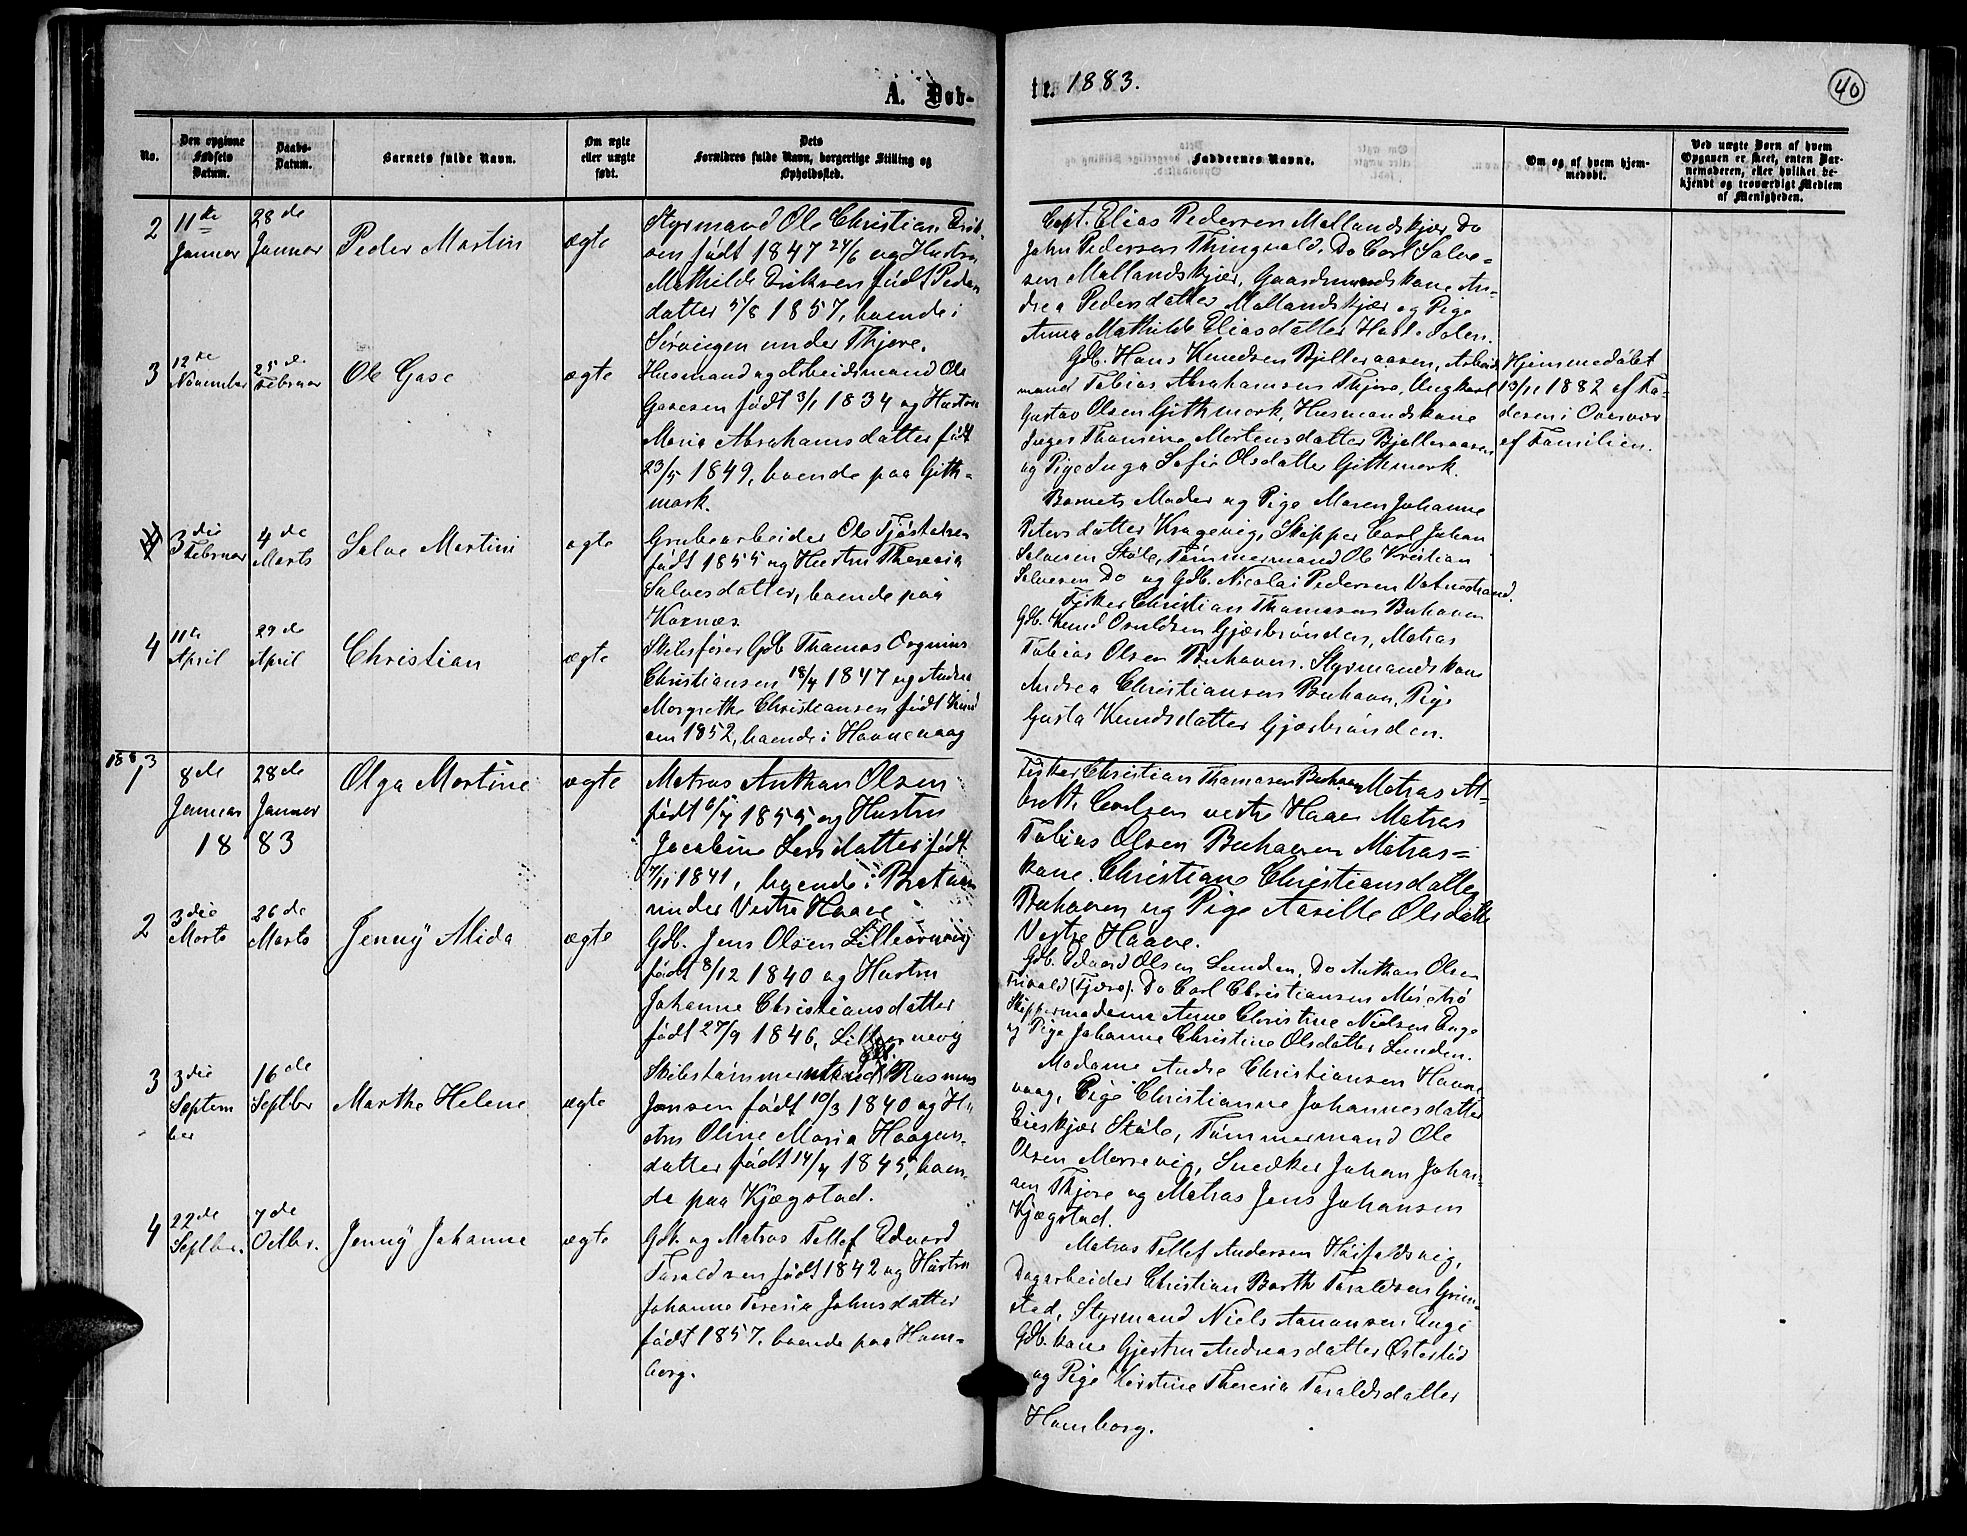 A. Døb-
te. 1883.
40
No.
Den opgivne Fødsels Datum.
Daabs-Datum.
Barnets fulde Navn.
Om ægte eller uægte født.
Dets Forældres fulde Navn, borgerlige Stilling og Opholdssted.
Faddernes Navne.
Om og af hvem hjemmedøbt.
Ved uægte Børn af hvem Opgaven er skeet, enten Barnemoderen, eller hvilket bekjendt og troværdigt Medlem af Menigheden.
2
11te Januar
28de Januar
Peder Martin
ægte
Styrmand Ole Christian Erik-
sen født 1847 24/6 og Hustru
Mathilde Eriksen født Peders
datter 5/8 1857, boende i
under Thjøre.
Capt. Elias Pedersen Mollandskjær Do
John Pedersen Thingvald, Do Carl Salve-
sen Mallandskjær, Gaardmandskone An-
drea Pedersdatter Mollandskjær og Pige
Anna Mathilde Eliasdatter
3
12te November
25de Februar
Ole Gase
ægte
Husmand og Arbeidsmand Ole
Gasesen født 3/1 1834 og Hustru
Maria Abrahamsdatter født
23/5 1849, boende paa Gith-
mark.
Gdb. Hans Knudsen Bjelleraasen, Arbeids
mand Tobias Abrahamsen Thjøre, Ungkarl
Gustav Olsen Githmark, Husmandskone
Inger Thomine Mortensdatter Bjelleraasen
og Pige Inga Sofie Olsdatter Githmark.
Hjemmedøbt
13/11 1882 af Fa-
deren i Overvær
af Familien.
3die Februar
4de Marts
Salve Martin
ægte
Grubearbeider Ole Tjøstelsen
født 1855 og Hustru Theresia
Salvesdatter, boende paa
Kornæs
Barnets Moder og Pige Maren Johanne
Petersdatter Kragevig, Skipper Carl Johan
Salvesen Skåle, Tømmermand Ole Kristian
Salvesen Do og Gdb. Nicolai Pedersen Vatnestrand.
4
11te April
29de April
Christian
ægte
Skibsfører Gdb Thomas
Christiansen 18/4 1847 og Andrea
Margrethe Christiansen født Knud
sen 1852, boende i Havnevaag
Fisker Christian Thomasen Buhaven
Gdb. Knud Osuldsen Gjærbrønden, Matros
Tobias Olsen Buhaven. Styrmandskone
Andrea Christiansen Buhaven, Pige
Gusta Knudsdatter Gjærbrønden.
1883
1
8de Januar
28de Januar
1883
Olga Martine
ægte
Matros Anthon Olsen
født 6/7 1855 og Hustru
Jacobine Larsdatter født
7/11 1841, boende i
under Vestre Haave
Fisker Christian Thomasen Buhaven Matros Al-
breth Carlsen vestre Haave Matros
Tobias Olsen Buhaven Matros-
kone Christiane Christiansdatter
Buhaven og Pige Aasille Olsdatter
Vestre Haave.
2
3die Marts
26de Marts
Jenny Alida
ægte
Gdb. Jens Olsen Lilleørnevig
født 8/12 1840 og Hustru
Johanne Christiansdatter
født 27/9 1846, Lilleørnevig
Gdb. Edvard Olsen Lunden, Do Anthon Olsen
(Tjøre). Do Carl Christiansen
Skippermadame Anne Christine Nielsen Enge
og Pige Johanne Christine Olsdatter Lunden.
3
3die September
16de Septbr
Marthe Helene
ægte
Skibstømmermand Rasmus
Jansen født 10/3 1840 og Hu-
stru Oline Maria Haagens-
datter født 14/4 1845, boen-
de paa Kjægstad.
Madame Andre Christiansen Havne
vaag, Pige Christianne Johannesdatter
Eieskjær Skåle, Tømmermand Ole
Olsen Morrevig, Snedker Johan Johan-
sen Thjøre og Matros Jens Johansen
Kjægstad.
4
22de Septbr.
7de Octbr.
Jenny Johanne
ægte
Gdb. og Matros Tellef Edvard
Taraldsen født 1842 og Hustru
Johanne Teresia Johnsdatter
født 1857, boende paa Ham-
borg.
Matros Tellef Andersen Høifaldsvig,
Dagarbeider Christian Barth Taraldsen Grim-
stad, Styrmand Niels Aanonsen Enge
Gdb. kone Gjertru Andreasdatter Østerhus
og Pige Kirstine Theresia Taraldsdatter
Homborg.